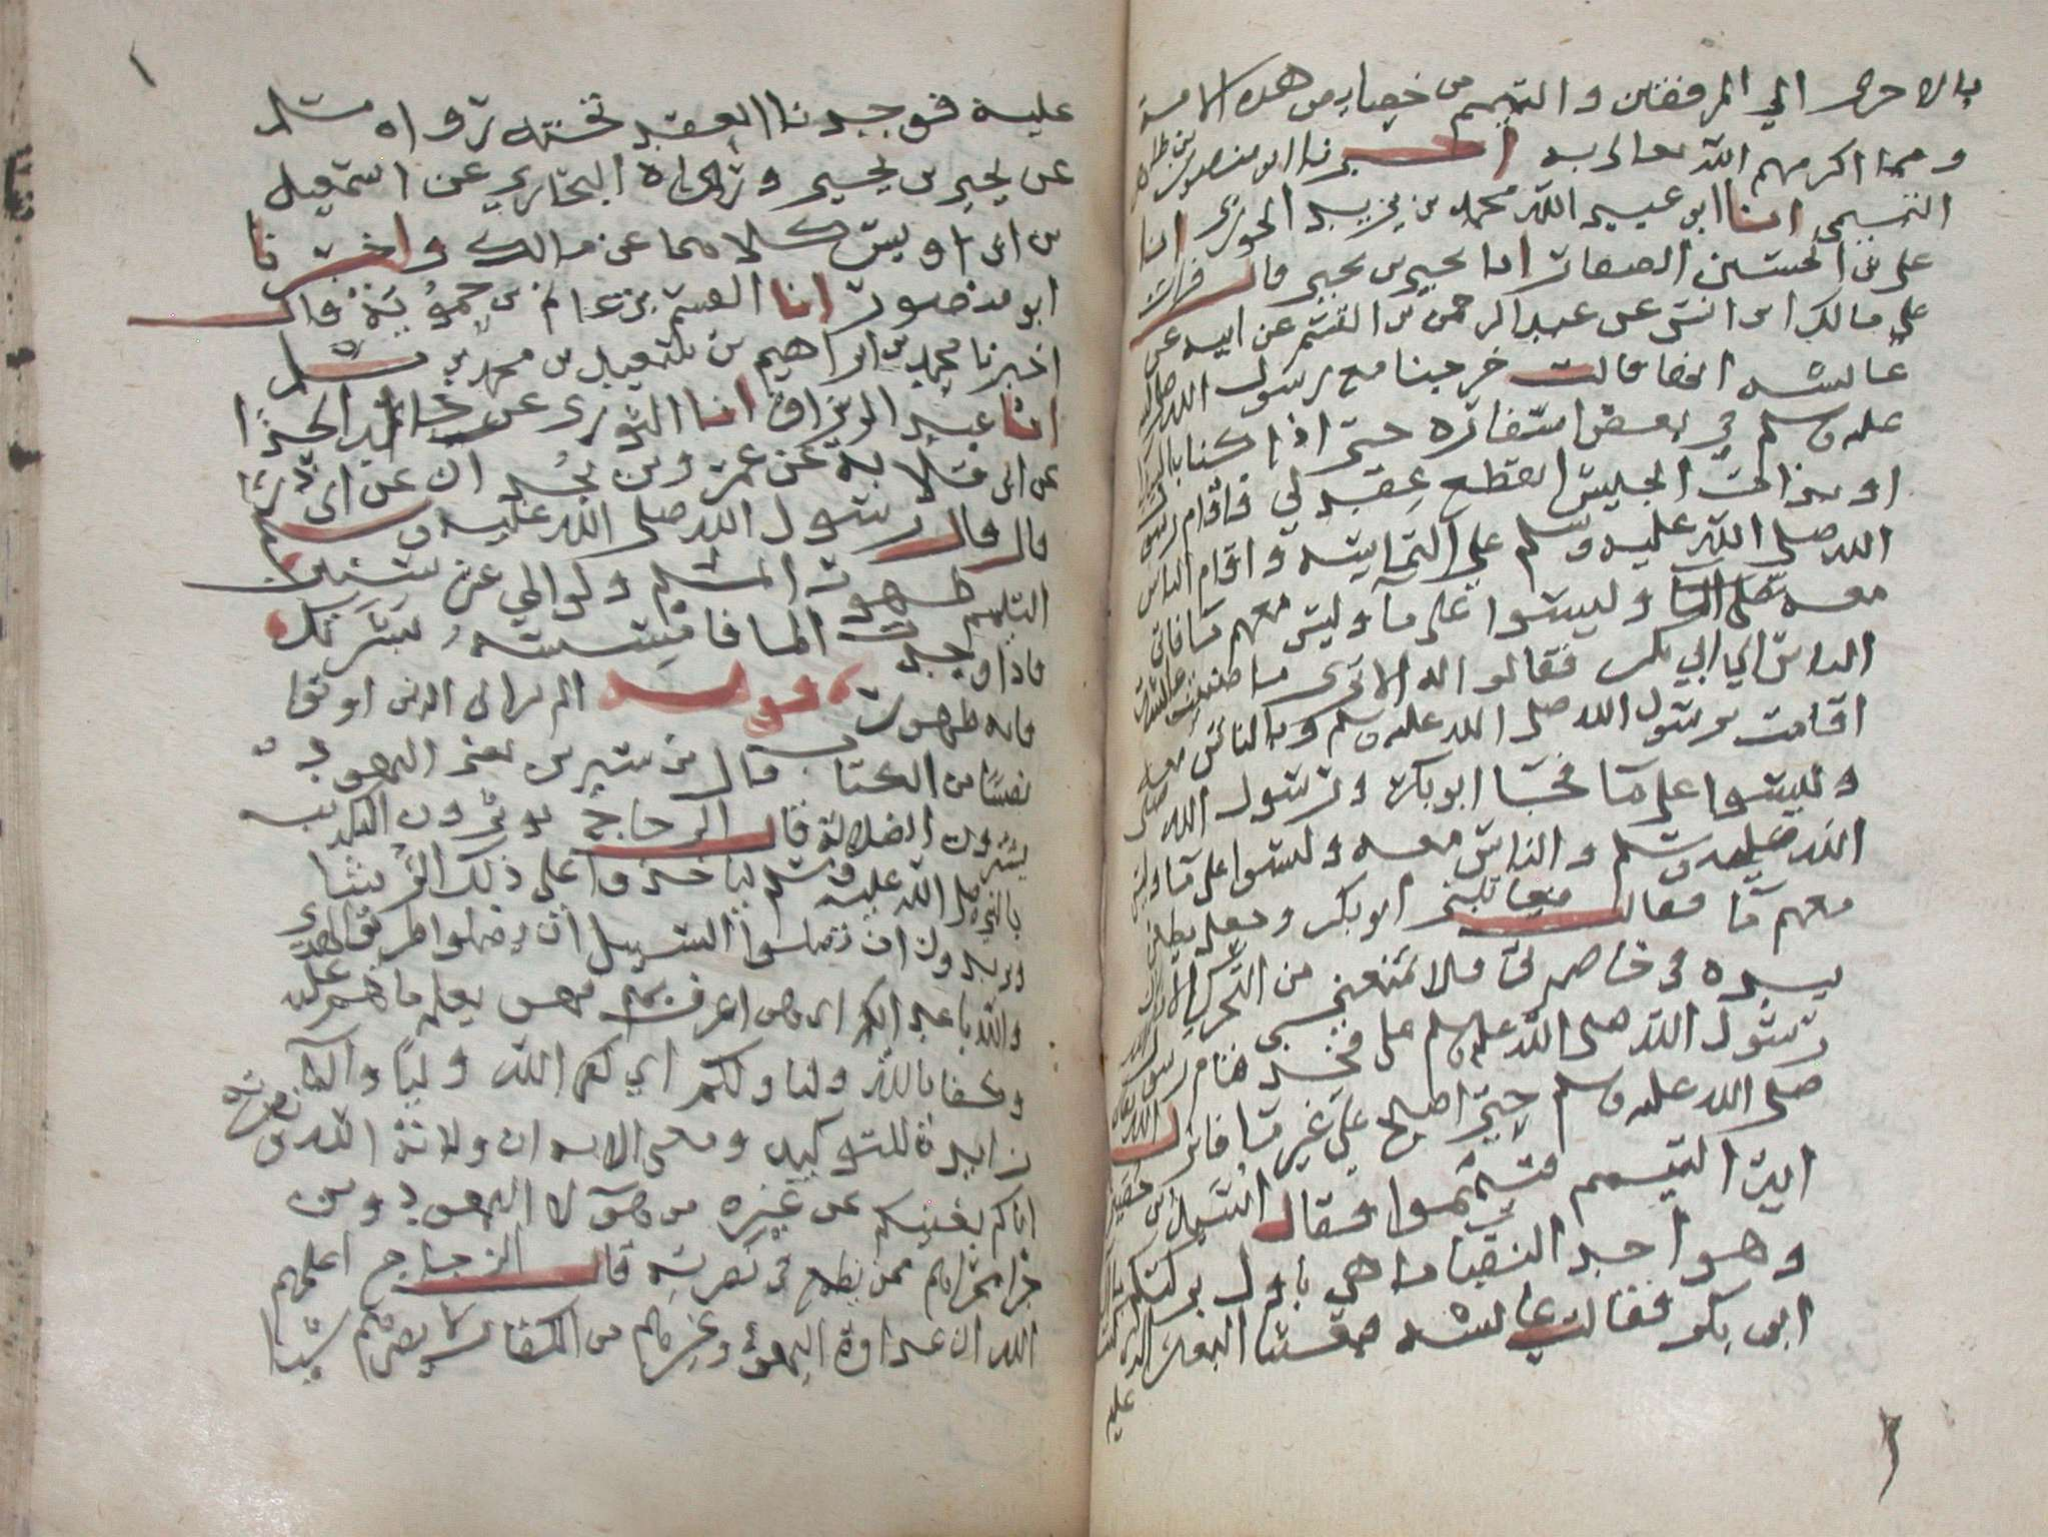 بالاخرى الى المرفقين والتيمم من خصايص هذه الامة
ومما اكرمهم الله تعالى به اخبرنا ابو منصور بن طاهر
التميمى انا ابن عبيد الله محمد بن يزيد الجوزى انا
على بن الحسين الصفار انا يحيى بن يحيى قال قرات
على مالك ابن انس عن عبد الرحمن بن القسم عن ابيه عن
عايشه انها قالت خرجنا مع رسول الله صلى الله
عليه وسلم في بعض اسفاره حتى اذا كنا بالبيداء
او بذات الجيش انقطع عقد لي فاقام رسول
الله صلى الله عليه وسلم على التماسه واقام الناس
معه وليسوا على ما وليس معهم ما فاتى
الناس الي ابي بكر فقالوا له الا ترى ما صنعت عايشة
اقامت برسول الله صلى الله عليه وسلم وبالناس معه
وليسوا على ما فجا ابو بكر ورسول الله صلى
الله عليه وسلم والناس معه وليسوا على ما وليس
معهم ما فقالت فعاتبنى ابو بكر وجعل يطعن
بيده فى خاصرتى فلا يمنعنى من التحرك الا مكان
رسول الله صلى الله عليه وسلم على فخذى فنام رسول الله
صلى الله عليه وسلم حتى اصبح على غير ما فانزل الله تعالى
اية التيمم فتيمموا فقال اسيد بن حضير
وهو احد النقبا ما هي باول بركتكم يا ال
ابى بكر فقالت عايشه فبعثنا البعير الذى كنت
عليه
عليه فوجدنا العقد تحته رواه مسلم
عن يحيى بن يحيى ورواه البخاري عن اسمعيل
بن ابى اويس كلاهما عن مالك واخبرنا
ابو منصور انا القسم بن غانم بن حموية قال
اخبرنا محمد بن ابراهيم بن اسمعيل بن محمد بن سهل
انا عبد الرزاق انا الثورى عن خالد الحذا
عن ابى قلابة عن عمرو بن بجدان عن ابى ذر
قال قال رسول الله صلى الله عليه وسلم
التيمم طهور المسلم ولو الى عشر سنين
فاذا وجد الما فامسسه بشرتك
فانه طهور قوله الم تر الى الذين اوتوا
نصيبا من الكتاب قال بن عباس يعنى اليهود
يشترون الضلالة قال الزجاج يوثرون التكذيب
بالنبى صلى الله عليه وسلم لياخذوا على ذلك الرشا
ويريدون ان تضلوا السبيل ان تضلوا طريق الهدى
والله باعدائكم اى هو اعرف بهم فهو يعلم ما هم عليه
وكفا بالله وليا ولكم اي لهم الله وليا والبا
زايدة للتوكيد ومعنى الايه ان ولاية الله ونصرته
اياكم يغنيكم عن غيره من هؤلا اليهود ومن
جرا مجراهم ممن يطمع فى نصرته قال الزجاج اعلمهم
الله ان عداوة اليهود وغيرهم من الكفار لا يضرهم شيا